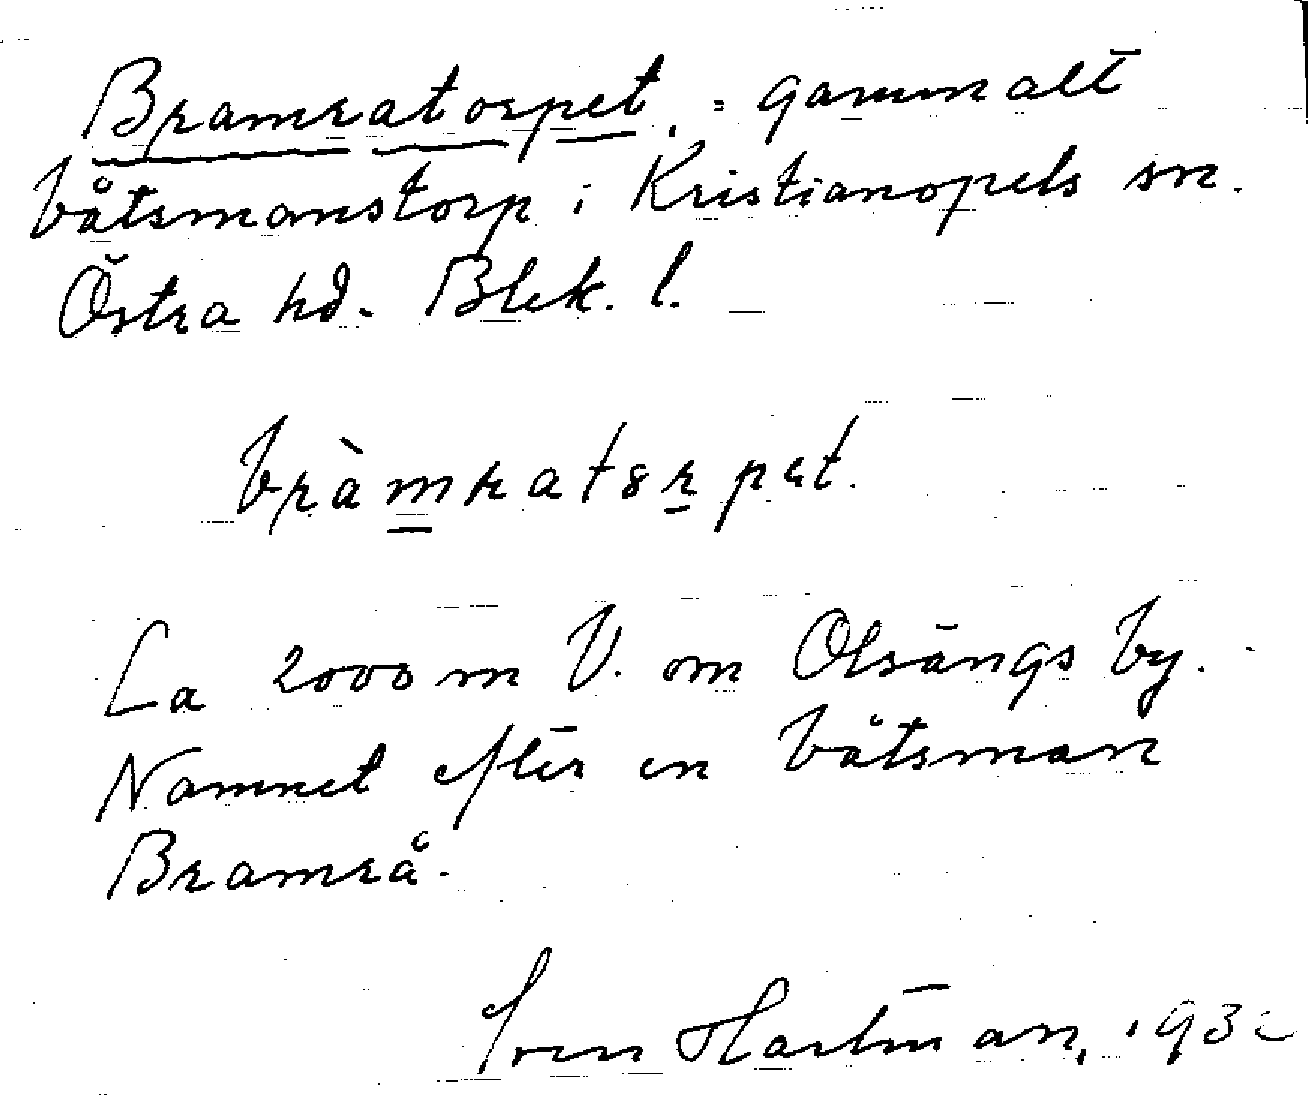 Bramratorpet, = gammalt
båtsmanstorp i Kristianopels sn.
Östra hd. Blek. l.
bràmratsrpet.
Ca 2000 m V. om Olsängs by.
Namnet efter en båtsman
Bramrå.
Sven Hartman, 1932